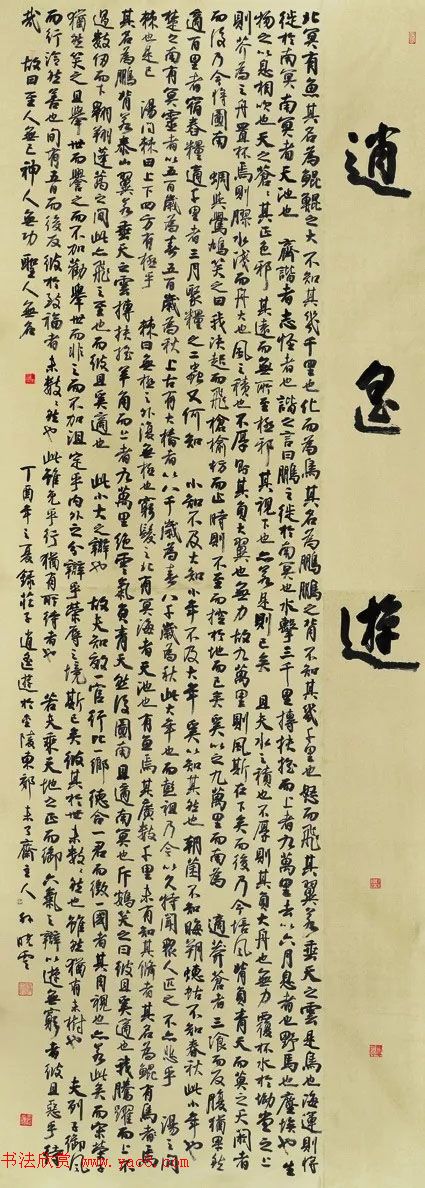 逍遙遊
北冥有魚其名為鯤鯤之大不知其幾千里也化而為鳥其名為鵬鵬之背不知其幾千里也怒而飛其翼若垂天之雲是鳥也海運則將
徙於南冥南冥者天池也 齊諧者志怪者也諧之言曰鵬之徙於南冥也水擊三千里摶扶搖而上者九萬里去以六月息者也野馬也塵埃也生
物之以息相吹也天之蒼蒼其正色邪其遠而無所至極邪其視下也亦若是則已矣 且夫水之積也不厚則其負大舟也無力覆杯水於坳堂之上
則芥為之舟置杯焉則膠水淺而舟大也風之積也不厚則其負大翼也無力故九萬里則風斯在下矣而後乃今培風背負青天而莫之夭閼者
而後乃今將圖南 蜩與鷽鳩笑之曰我決起而飛槍榆枋而止時則不至而控於地而已矣奚以之九萬里而南為 適莽蒼者三飡而反腹猶果然
適百里者宿舂糧適千里者三月聚糧之二蟲又何知 小知不及大知小年不及大年奚以知其然也朝菌不知晦朔蟪蛄不知春秋此小年也
楚之南有冥靈者以五百歲為春五百歲為秋上古有大椿者以八千歲為春八千歲為秋此大年也而彭祖乃今以久特聞眾人匹之不亦悲乎 湯之問
棘也是已 湯問棘曰上下四方有極乎 棘曰無極之外復無極也窮髮之北有冥海者天池也有魚焉其廣數千里未有知其脩者其名為鯤有鳥焉
其名為鵬背若泰山翼若垂天之雲摶扶搖羊角而上者九萬里絕雲氣負青天然後圖南且適南冥也斥鴳笑之曰彼且奚適也我騰躍而上不
過數仞而下翱翔蓬蒿之間此亦飛之至也而彼且奚適也 此小大之辯也 故夫知效一官行比一鄉德合一君而徵一國者其自視也亦若此矣而宋榮子
猶然笑之且舉世而譽之而不加勸舉世而非之而不加沮定乎內外之分辯乎榮辱之境斯已矣彼其於世未數數然也雖然猶有未樹也 夫列子御風
而行泠然善也旬有五日而後反彼於致福者未數數然也此雖免乎行猶有所待者也 若夫乘天地之正而御六氣之辯以遊無窮者彼且惡乎待
哉 故曰至人無己神人無功聖人無名
丁酉年之夏錄莊子逍遙遊於金陵東郊 未了齋主人 孫曉雲
书法欣赏 www.yac8.com